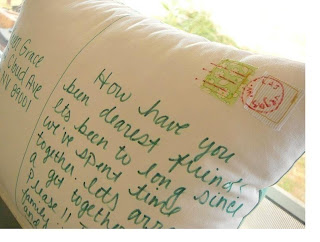 Grace
Cloud Ave
NV 89001
How have you
been dearest friend?
Its been to long since
we've spent time
together. lets arra
a get together
Please !!
family
and